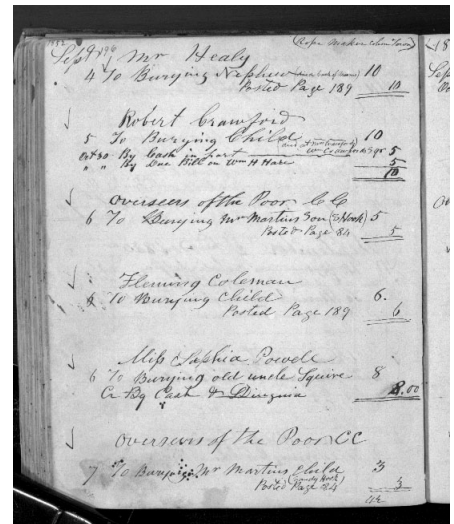 1832
Sept 4 196 Mr Healy (Rope Maker
4 To Burying Nephew 10
Posted Page 189 10
Robert Crawford
5 To Burying Child 10
Oct 30 By Cash in Part 5
" " By Due Bill on Wm H Hare 5
10
Overseers of the Poor C C
6 To Burying Mr Martins Son (S Hook) 5
Posted Page 84 5
Fleming Coleman
6 To Burying Child 6.
Posted Page 189 6
Miss Sophia Powell
6 To Burying old uncle Squire 8
Cr By Cash & 8.00
Overseers of the Poor CC
7 To Burying Mr Martins Child 3
(Sandy Hook)
Posted Page 84 3
42